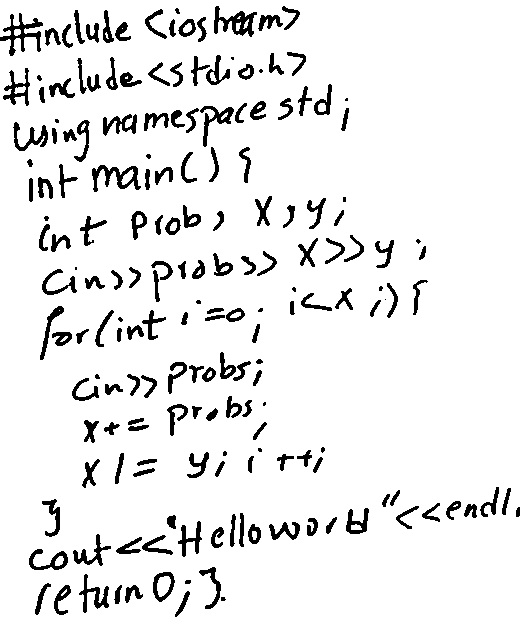 #include <iostream>
#include<stdio.h>
using namespace std;
int main() {
int prob, x,y;
cin>>probs>> x>>y;
for(int i=0; i<x ;) {
cin>> probs;
x+= probs;
x /= y; i ++;
}
cout<<"Hello world"<<endl.
return 0; }.